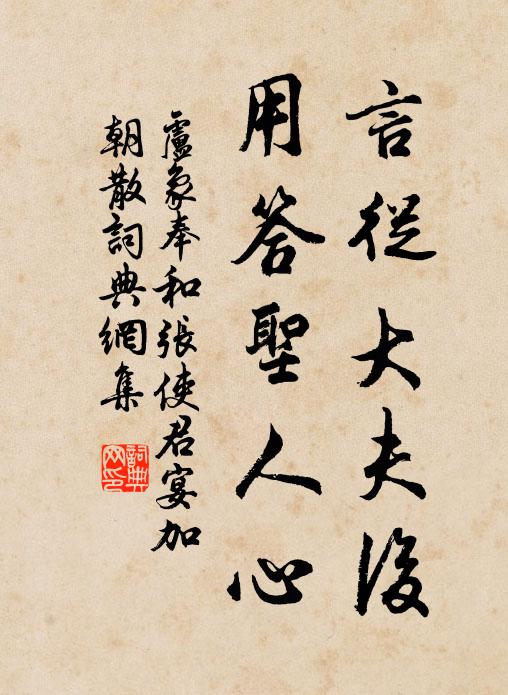 言從大夫後
用答聖人心
盧象奉和張使君宴加
朝散詞典網集
詞典网印